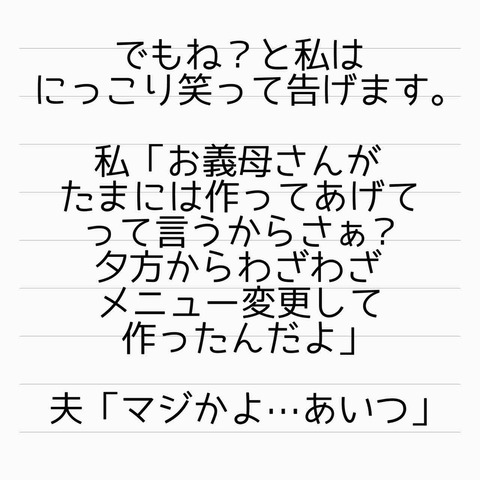 でもね？と私は
にっこり笑って告げます。
私「お義母さんが
たまには作ってあげて
って言うからさぁ？
夕方からわざわざ
メニュー変更して
作ったんだよ」
夫「マジかよ…あいつ」